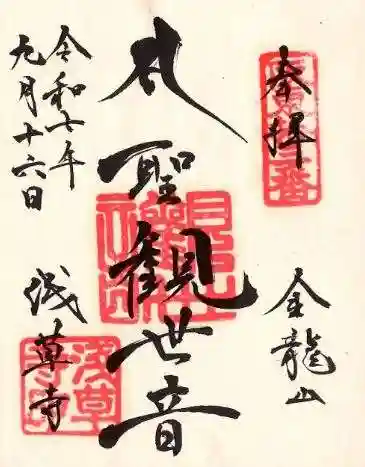 奉拝
金龍山
聖観世音
浅草寺
令和七年
九月十六日